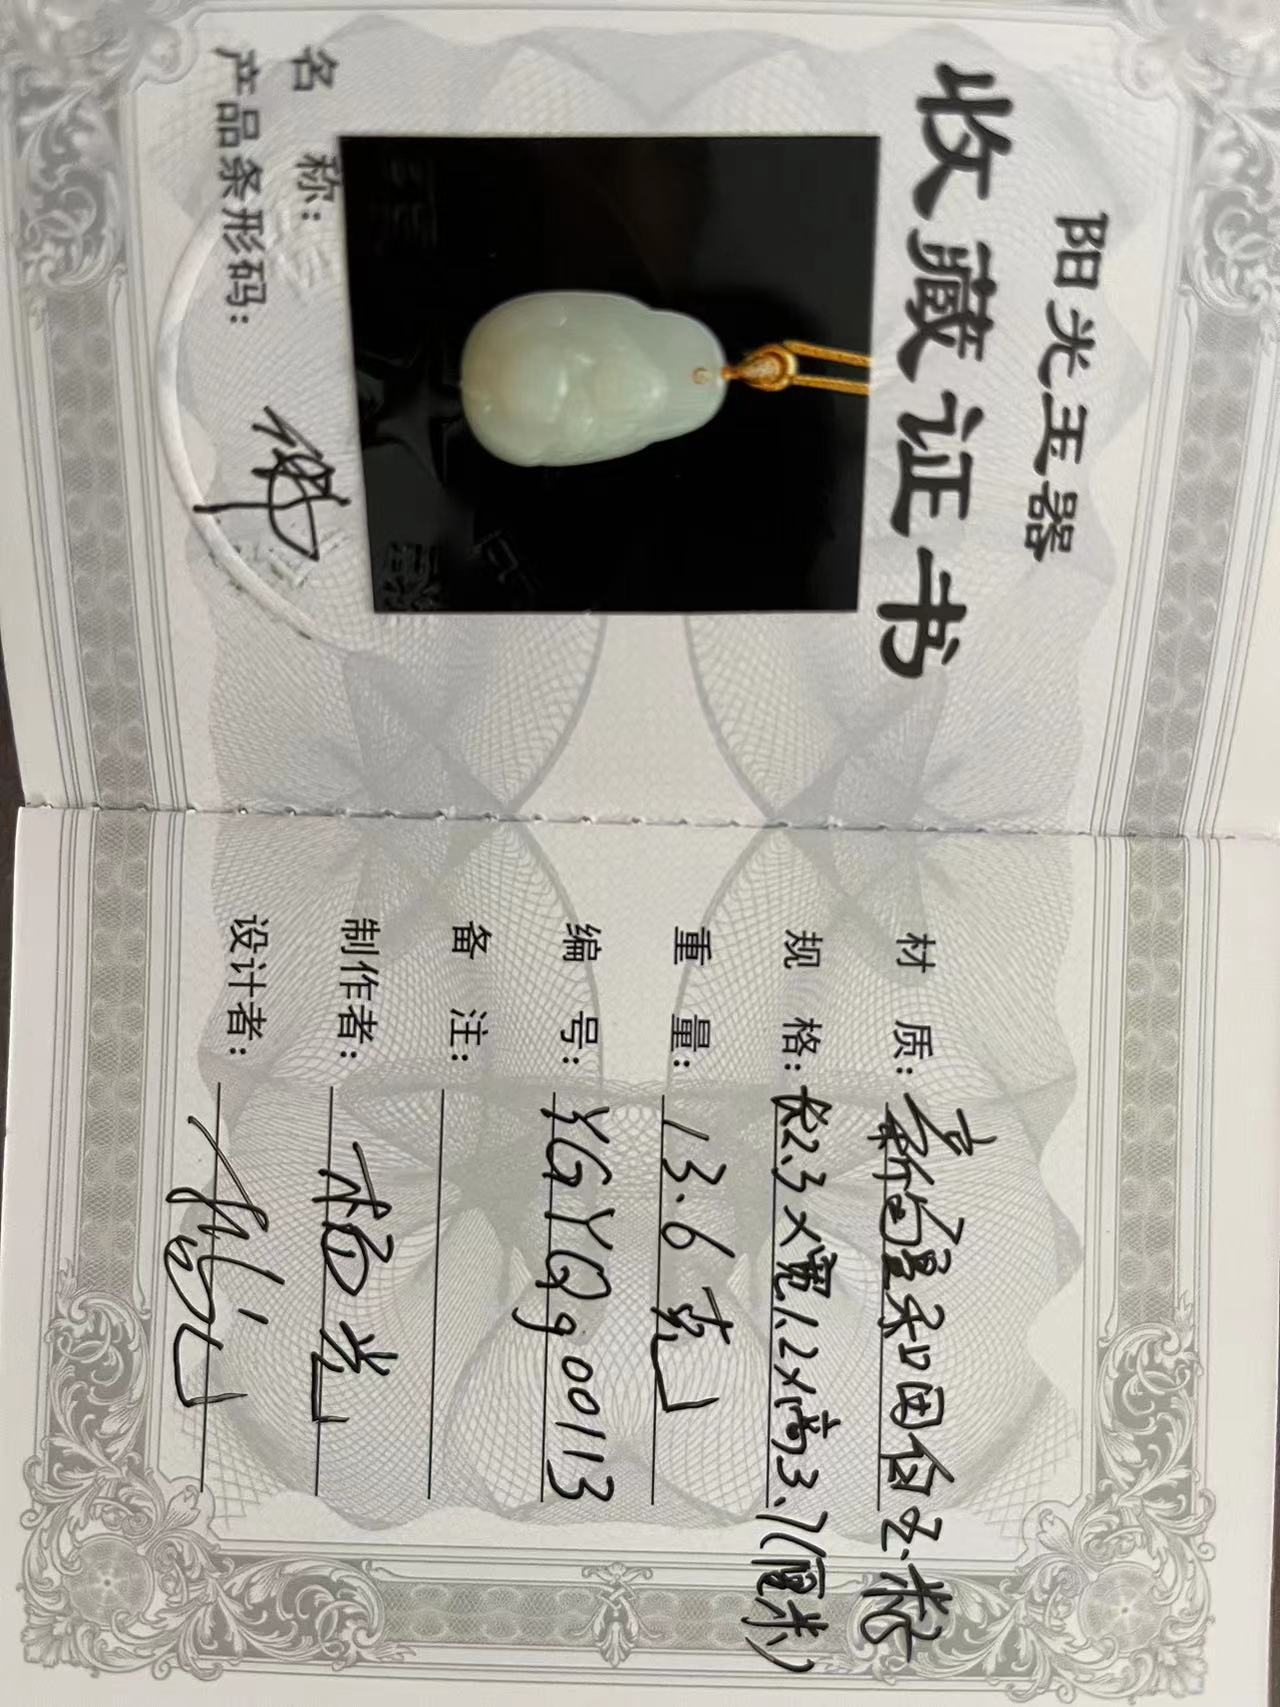 阳光玉器
收藏证书
名 称: 佛
产品条形码:
材 质: 新疆和田白玉.籽
规 格: 长2.3×宽1.2×高3.7(厘米)
重 量: 13.6克
编 号: YGYQg00113
备 注:
制作者: 杨光
设计者: 杨光